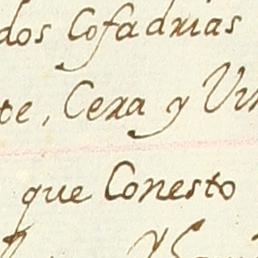 dos Cofadrias
te, Cera y Vi
que Conesto